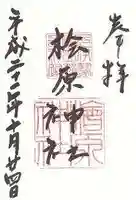 奉拝
桧原神社
平成二十二年十月廿四日